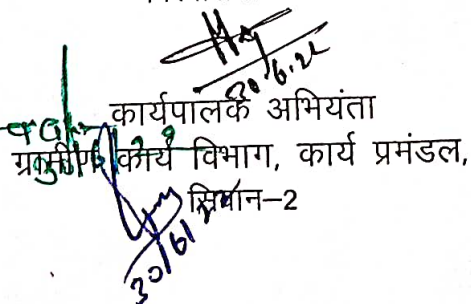 30.6.22
कार्यपालक अभियंता
ग्रामीण कार्य विभाग, कार्य प्रमंडल,
सिवान-2
30/6/22